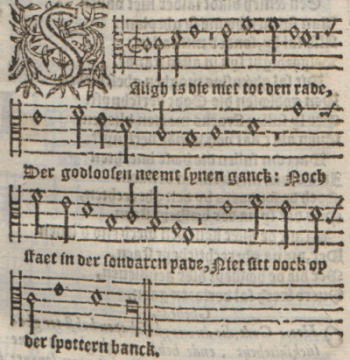 SAligh is die niet tot den rade,
Der godloosen neemt synen ganck: Noch
staet in der sondaren pade, Niet sitt oock op
der spottern banck.